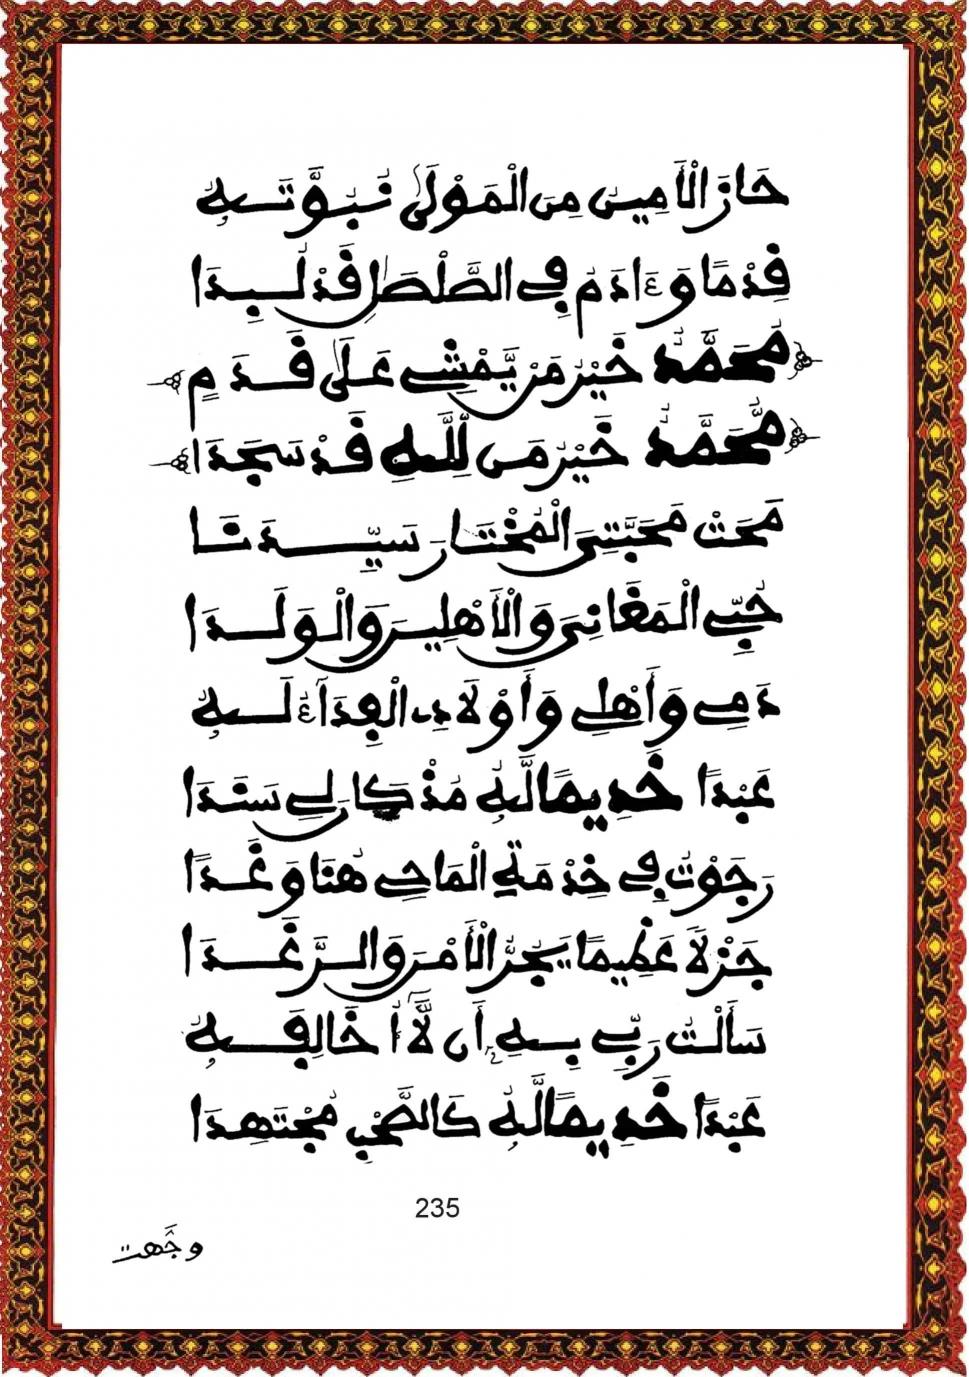 حَازَ الْأَمِينُ مِنَ الْمَوْلَى نُبُوَّتَهُ
قِدْمًا وَءَادَمُ فِي الصَّلْصَالِ قَدْ لُبِدَا
مُحَمَّدٌ خَيْرُ مَنْ يَّمْشِي عَلَى قَدَمٍ
مُحَمَّدٌ خَيْرُ مَن لِّلَّهِ قَدْ سَجَدَا
مَحَتْ مَحَبَّتِيَ الْمُخْتَارَ سَيِّدَنَا
حُبِّي الْمَغَانِيَ وَالْأَهْلِينَ وَالْوَلَدَا
دَمِي وَأَهْلِي وَأَوْلَادِي الْفِدَاءُ لَهُ
عَبْدًا خَدِيمًا لَّهُ مُذْ كَانَ لِي سَنَدَا
رَجَوْتُ فِي خِدْمَةِ الْمَاحِي هُنَا وَغَدًا
جَزْلًا عَظِيمًا يَجُرُّ الْأَمْنَ وَالرَّغَدَا
سَأَلْتُ رَبِّي بِهِ أَن لَّا أُخَالِفَهُ
عَبْدًا خَدِيمًا لَّهُ كَالصَّحْبِ مُجْتَهِدَا
235
وجَّهت